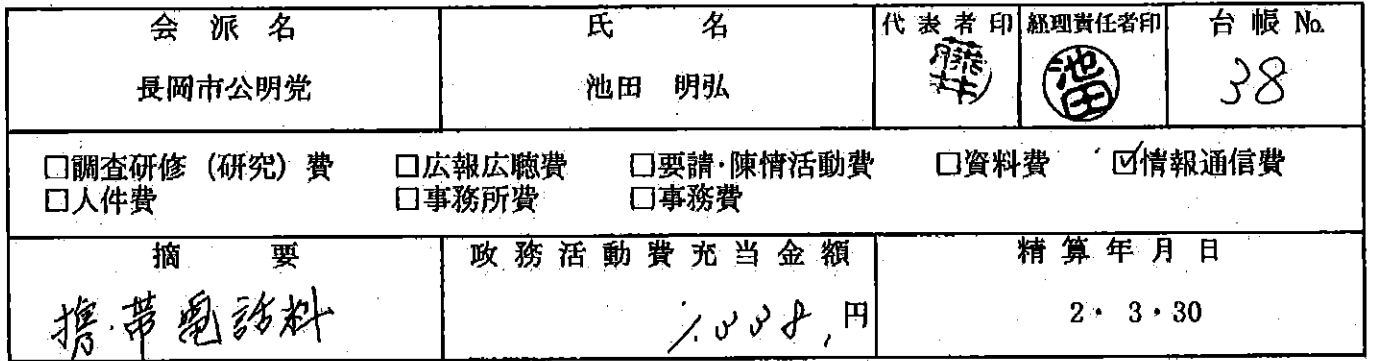 会派名 氏名 代表者印 経理責任者印 台帳 No.
長岡市公明党 池田 明弘 藤井 池田 38
□調査研修(研究)費 □広報広聴費 □要請・陳情活動費 □資料費 ☑情報通信費
□人件費 □事務所費 □事務費
摘要 政務活動費充当金額 精算年月日
携帯電話料 1,338,円 2・3・30